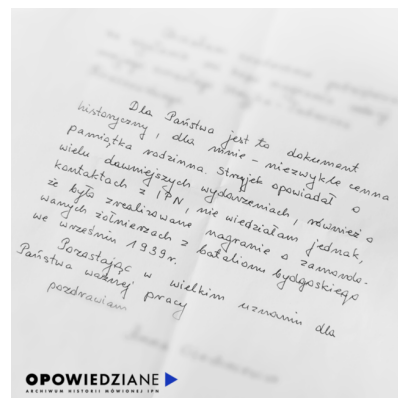 Dla Państwa jest to dokument
historyczny, dla mnie – niezwykle cenna
pamiątka rodzinna. Stryjek opowiadał o
wielu dawniejszych wydarzeniach, również o
kontaktach z IPN, nie wiedziałam jednak,
że było zrealizowane nagranie o zamordo-
wanych żołnierzach z batalionu bydgoskiego
we wrześniu 1939r.
Pozostając w wielkim uznaniu dla
Państwa ważnej pracy
pozdrawiam
OPOWIEDZIANE
ARCHIWUM HISTORII MÓWIONEJ IPN